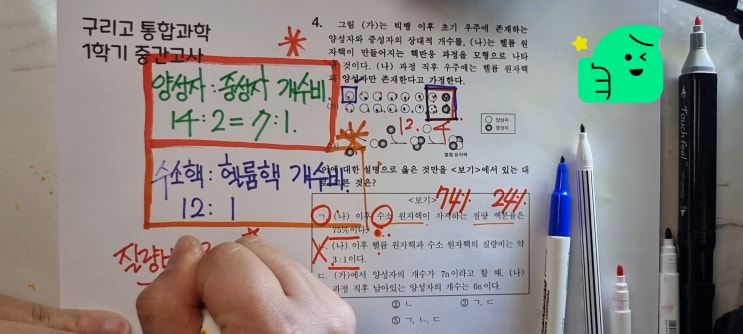 구리고 통합과학
1학기 중간고사
양성자 : 중성자 개수비.
14 : 2 = 7 : 1.
수소핵 : 헬륨핵 개수비.
12 : 1
질량비
4.
그림 (가)는 빅뱅 이후 초기 우주에 존재하는
양성자와 중성자의 상대적 개수를, (나)는 헬륨 원
자핵이 만들어지는 핵반응 과정을 모형으로 나타
것이다. (나) 과정 직후 우주에는 헬륨 원자핵
과 양성자만 존재한다고 가정한다.
양성자
중성자
12. 4
헬륨 원자핵
이에 대한 설명으로 옳은 것만을 <보기>에서 있는 대
로 고른 것은?
<보기>
74% 24%
ㄱ. (나) 이후 수소 원자핵이 차지하는 질량 백분율은
75%이다.
X
(나) 이후 헬륨 원자핵과 수소 원자핵의 질량비는 약
3:1이다.
ㄷ. (가)에서 양성자의 개수가 7n이라고 할 때, (나)
과정 직후 남아있는 양성자의 개수는 6n이다.
② ㄴ ③ ㄱ, ㄷ
⑤ ㄱ, ㄴ, ㄷ
Touch feel